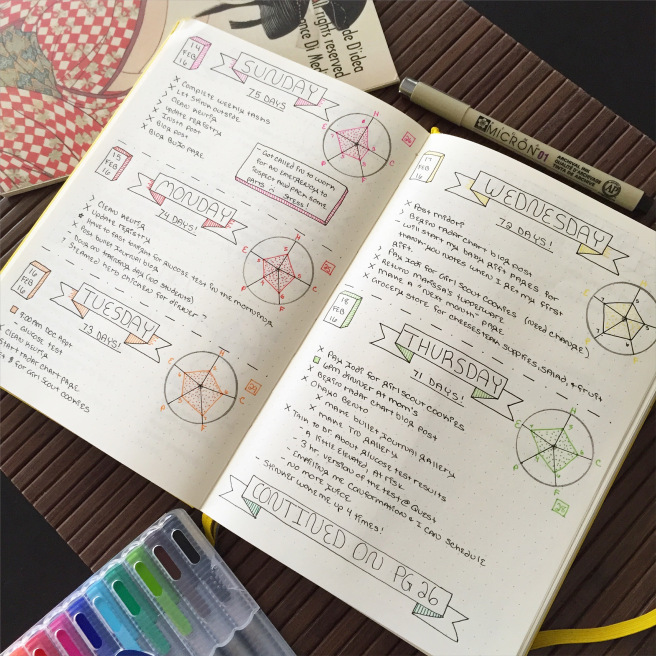 14
FEB
16
SUNDAY
75 DAYS
x Complete weekly tasks
x Let Simon outside
> Clean Neurja
> update registry
x Insta post
x Blog post
x Blog Bujo page
Got called in to work
for an emergency to
inspect and pack some
parts :( stress!
15
FEB
16
MONDAY
74 DAYS!
> Clean Neurja
x update registry
* Have to fast tonight for glucose test in the morning
x post bullet journal blog
x training day (no students)
? Steamed hero chicken for dinner?
16
FEB
16
TUESDAY
73 DAYS!
9:00AM Doc Appt
- glucose test
x Clean Neurja
start radar chart page
$ for Girl Scout cookies
17
FEB
16
WEDNESDAY
72 DAYS!
x Post midori
> Begin radar chart blog post
- will start my baby gift pages for
thank-you notes when I get my first
gift.
> Pay Jodi for Girl Scout cookies (need change)
x Return Marissa's tupperware
x make a "next month" page
x Grocery store for cheesesteak supplies, salad, & fruit
18
FEB
16
THURSDAY
71 DAYS!
x Pay Jodi for girl scout cookies
6pm dinner at mom's
> Begin radar chart blog post
x Make bullet journal gallery
x Make TID gallery
x Talk to Dr about glucose test results
- A little elevated, At risk
- 3 hr. version of the test @ Quest
- Emailing me confirmation & I can schedule
- No more juice
- Striker woke me up 4 times!
CONTINUED ON PG 26
de D'idea
All rights reserved
MICRON 01
ARCHIVAL INK